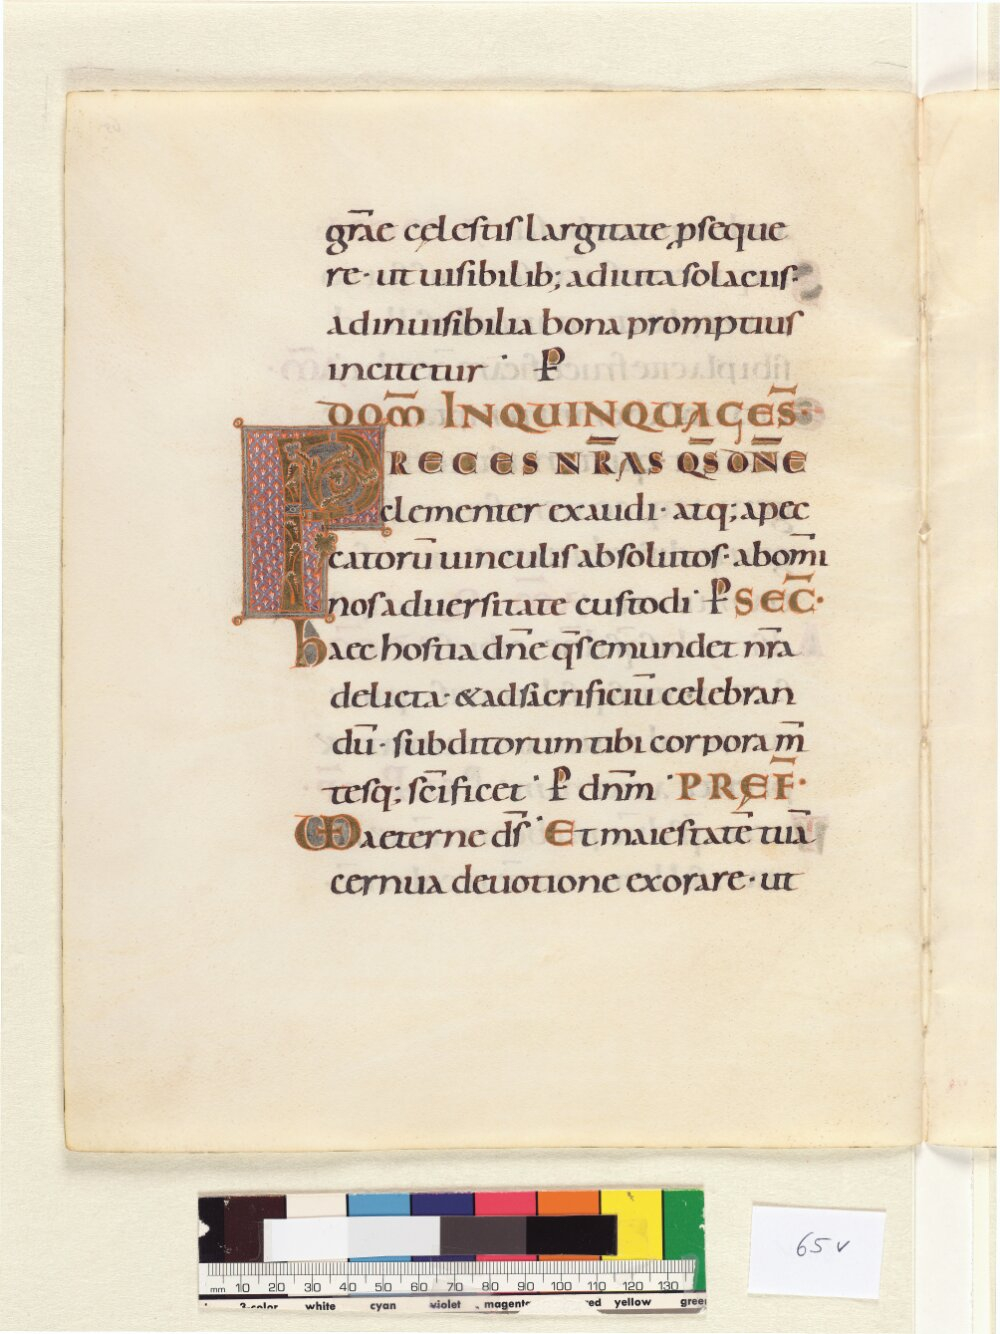 gr̄ae cęlestis largitate ꝑseque
re· ut uisibilib; adiuta solaciis·
ad inuisibilia bona promptius
incitetur · P̱
DOM̄ IN QUINQUAGES̄:
PRECES NR̄AS QS̄ DN̄E
clementer exaudi· atq; apec
catorū uinculis absolutos· abom̄i
nos aduersitate custodi· P̱ SEC̄·
haec hostia dn̄e qs̄ emundet nr̄a
delicta· & ad sacrificiū celebran
dū· subditorum tibi corpora m̄
tesq; sc̄ificet · P̱ dn̄m · PRĘF̄·
UD aeterne ds̄ · Et maiestatē tuā
cernua deuotione exorare· ut
mm 10 20 30 40 50 60 70 80 90 100 110 120 130
3-color white cyan violet magenta red yellow green
65v